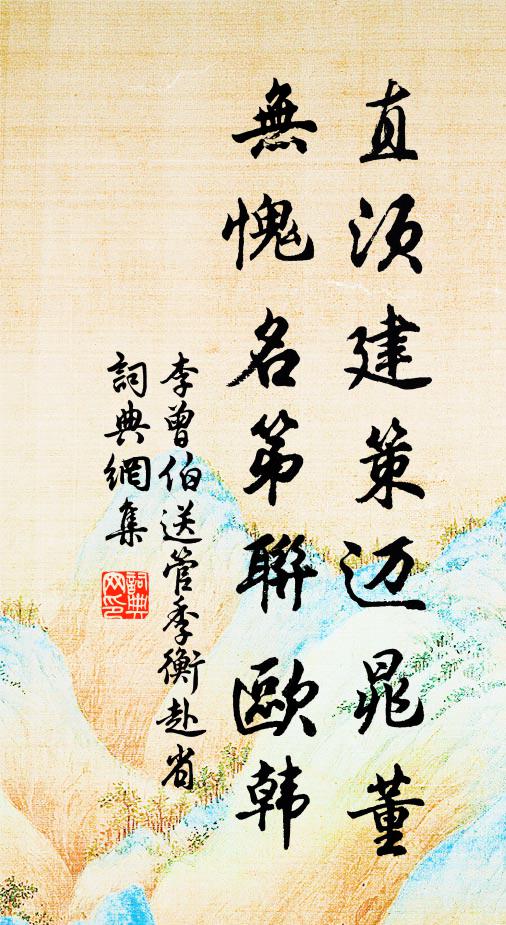 直须建策迈晁董
無愧名第聯歐韩
李曾伯送管季衡赴省
詞典網集
詞典網印